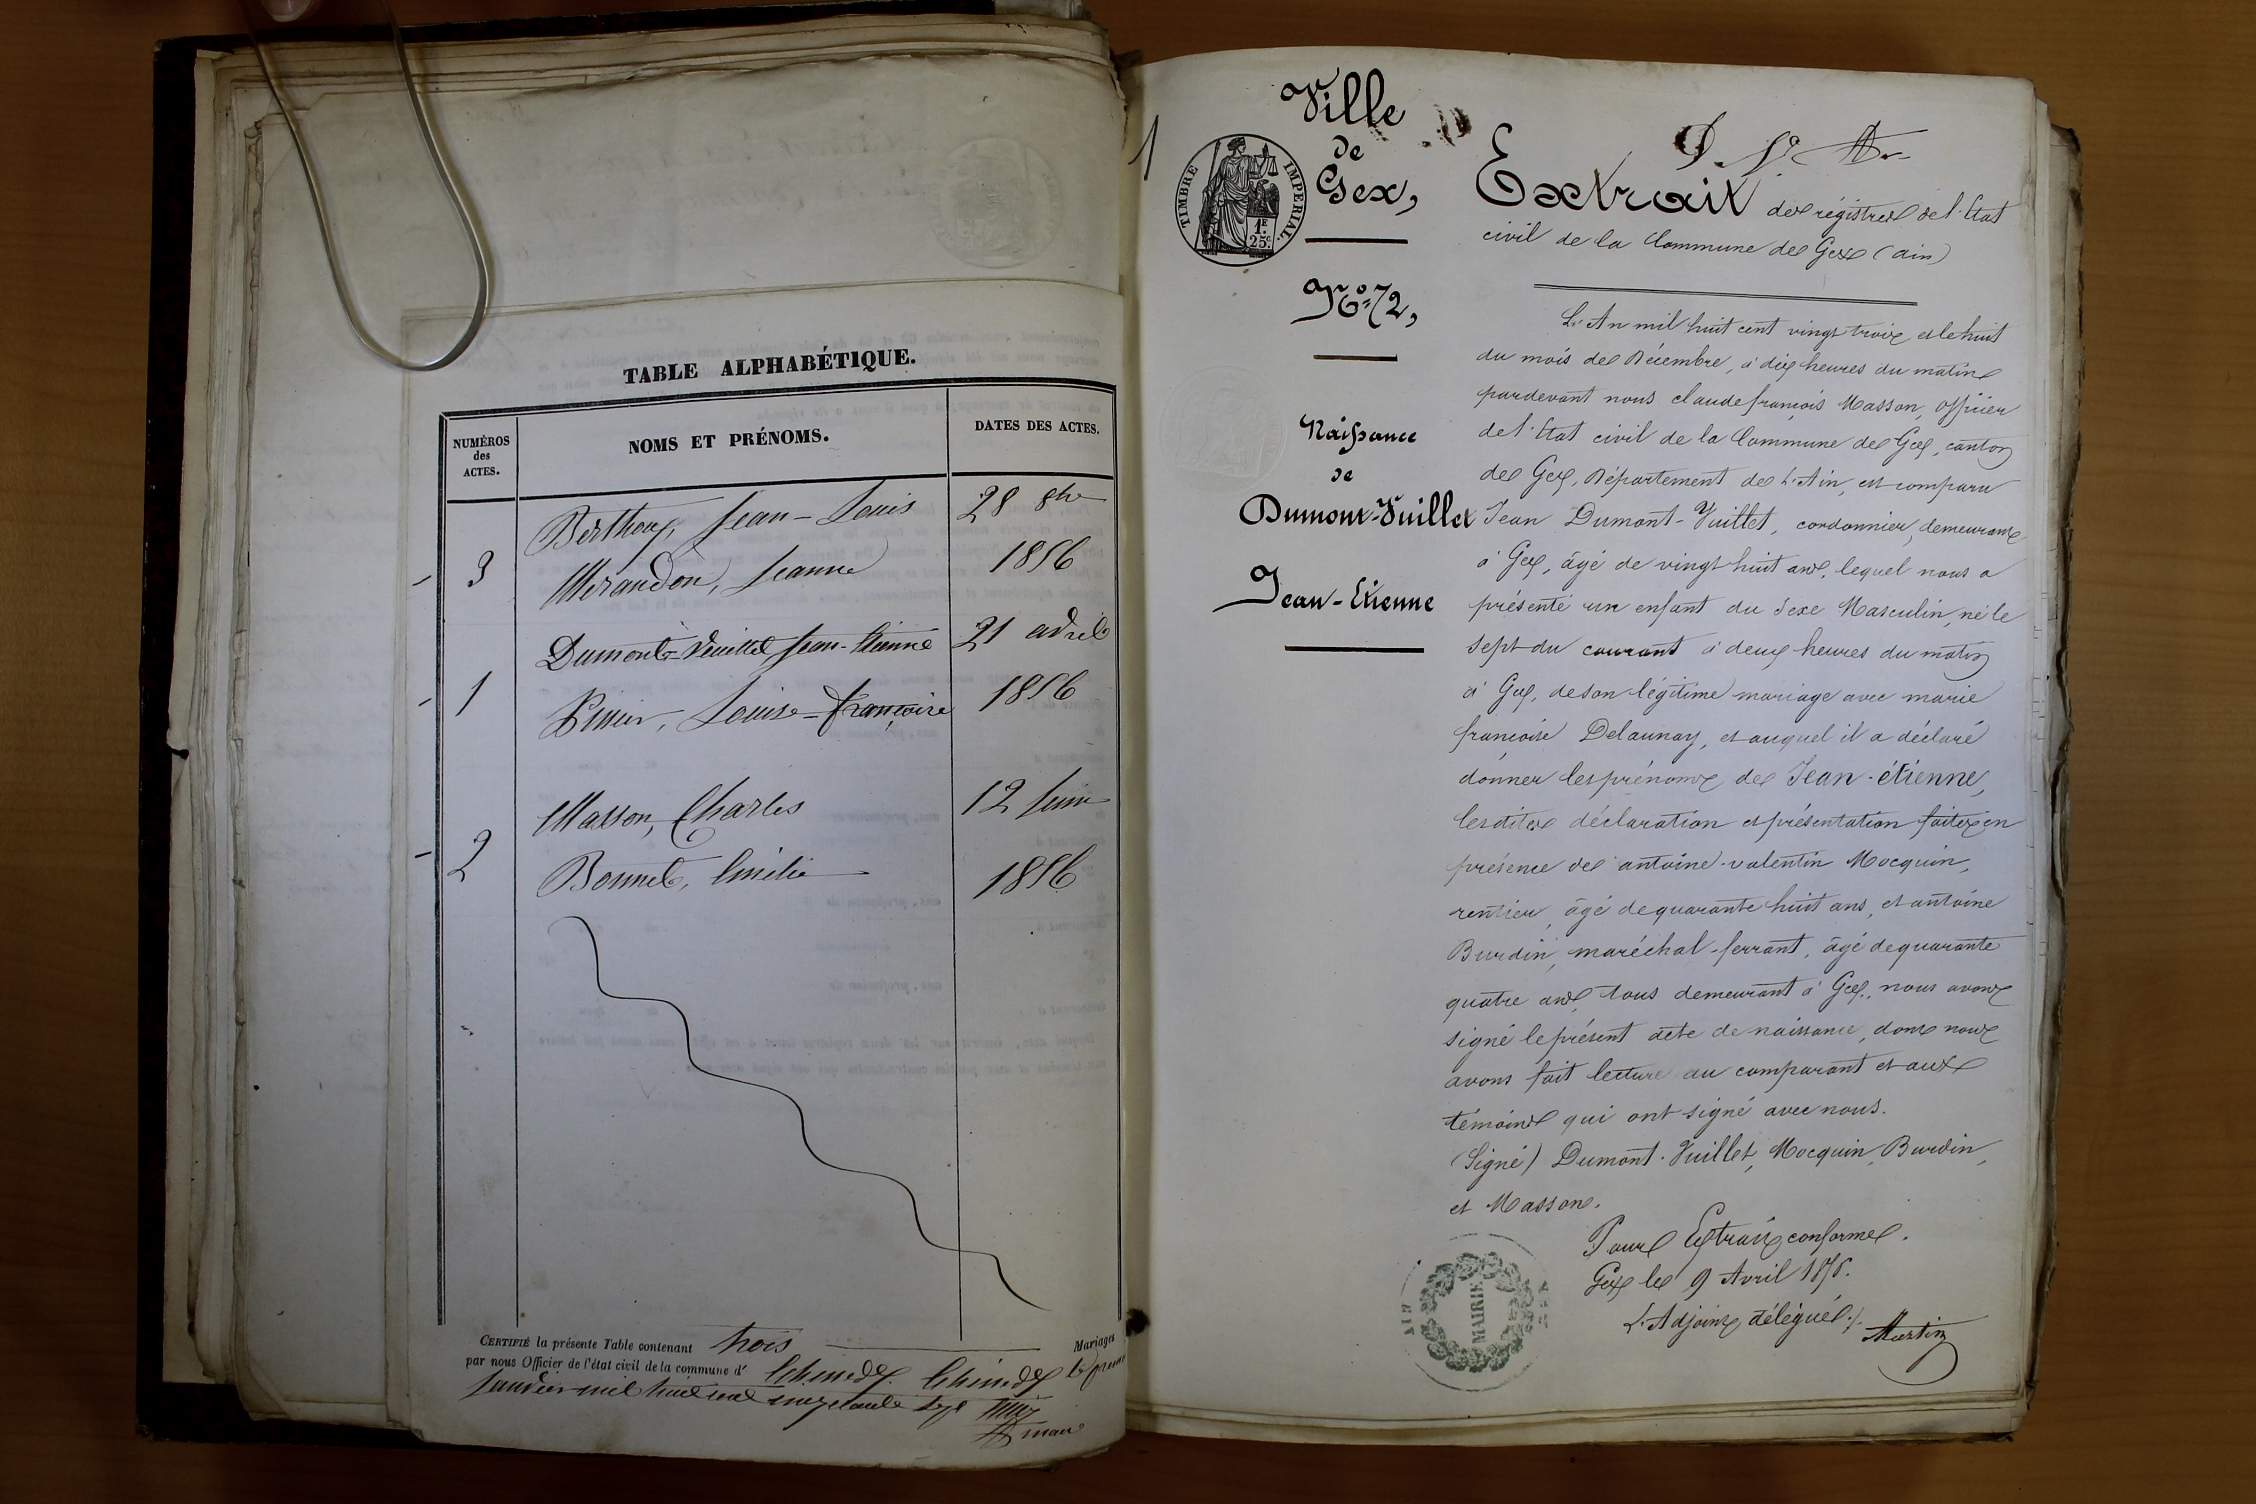 TABLE ALPHABÉTIQUE.
NUMÉROS
des
ACTES.
NOMS ET PRÉNOMS.
DATES DES ACTES.
Berthoux, Jean-Louis 28 8bre
3 Jeanne 1856
Dumont-Vuillet Jean-Etienne 21 avril
1 Louise-françoise 1856
Masson, Charles 12 Juin
2 Bonnet, Emélie 1856
CERTIFIÉ la présente Table contenant trois Mariages
par nous Officier de l'état civil de la commune d'
Janvier mil huit cent cinquante sept
1
Ville
de
Gex,
TIMBRE IMPERIAL.
1F.
25c
No. 72,
Naissance
de
Dumont-Vuillet
Jean-Etienne
Extrait des régistres de l'Etat
civil de la Commune de Gex (ain)
L'An mil huit cent vingt trois et le huit
du mois de Décembre, à dix heures du matin
pardevant nous claude françois Masson, Officier
de l'Etat civil de la Commune de Gex, canton
de Gex, Département de L'Ain, est comparu
Jean Dumont-Vuillet, cordonnier, demeurant
à Gex, âgé de vingt huit ans, lequel nous a
présenté un enfant du Sexe Masculin, né le
sept du courant à deux heures du matin
à Gex, de son légitime mariage avec marie
françoise Delaunay, et auquel il a déclaré
donner les prénoms de Jean-étienne,
lesdites déclaration et présentation faites en
présence de antoine-valentin Mocquin,
rentier, âgé de quarante huit ans, et antoine
Burdin, maréchal-ferrant, âgé de quarante
quatre ans, tous demeurant à Gex, nous avons
signé le présent acte de naissance, dont nous
avons fait lecture au comparant et aux
témoins qui ont signé avec nous.
(Signé) Dumont-Vuillet, Mocquin, Burdin,
et Masson.
Pour Extrait conforme.
Gex le 9 Avril
L'Adjoint délégué,
Martin
MAIRIE
AIN